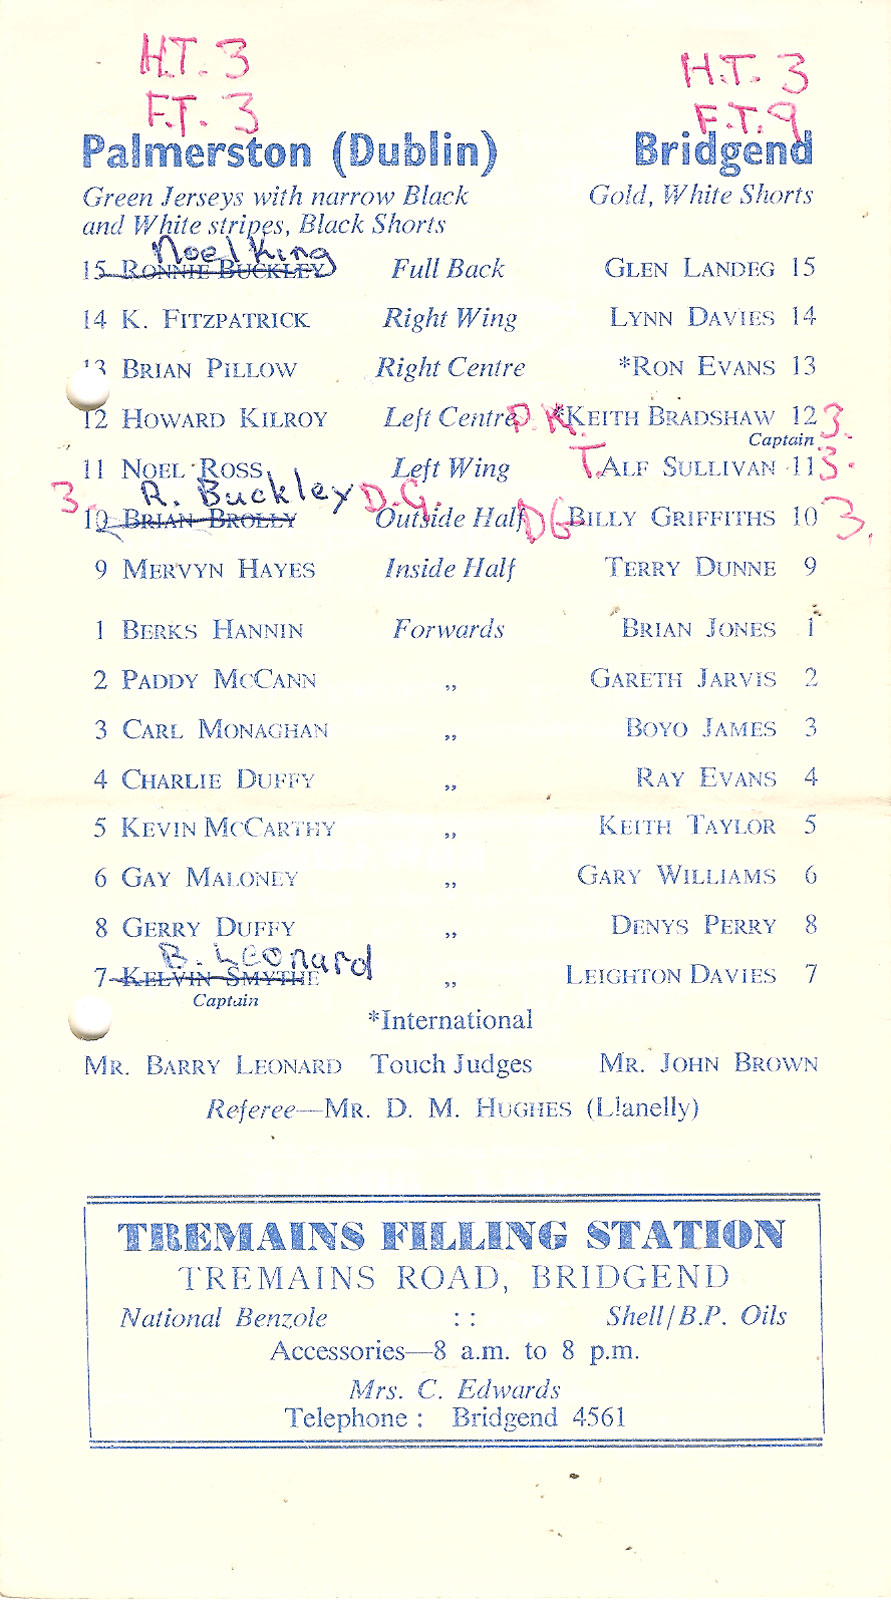 H.T. 3 H.T. 3
F.T. 3 F.T. 9
Palmerston (Dublin) Bridgend
Green Jerseys with narrow Black Gold, White Shorts
and White stripes, Black Shorts
Noel King
15 RONNIE BUCKLEY Full Back GLEN LANDEG 15
14 K. FITZPATRICK Right Wing LYNN DAVIES 14
13 BRIAN PILLOW Right Centre *RON EVANS 13
12 HOWARD KILROY Left Centre P.K. *KEITH BRADSHAW 12 3.
Captain
11 NOEL ROSS Left Wing T. ALF SULLIVAN 11 3.
R. Buckley
3. 10 BRIAN BROLLY D.G. Outside Half DG BILLY GRIFFITHS 10 3.
9 MERVYN HAYES Inside Half TERRY DUNNE 9
1 BERKS HANNIN Forwards BRIAN JONES 1
2 PADDY MCCANN ,, GARETH JARVIS 2
3 CARL MONAGHAN ,, BOYO JAMES 3
4 CHARLIE DUFFY ,, RAY EVANS 4
5 KEVIN MCCARTHY ,, KEITH TAYLOR 5
6 GAY MALONEY ,, GARY WILLIAMS 6
8 GERRY DUFFY ,, DENYS PERRY 8
B. Leonard
7 KELVIN SMYTHE ,, LEIGHTON DAVIES 7
Captain
*International
MR. BARRY LEONARD Touch Judges MR. JOHN BROWN
Referee—MR. D. M. HUGHES (Llanelly)
TREMAINS FILLING STATION
TREMAINS ROAD, BRIDGEND
National Benzole :: Shell/B.P. Oils
Accessories—8 a.m. to 8 p.m.
Mrs. C. Edwards
Telephone : Bridgend 4561